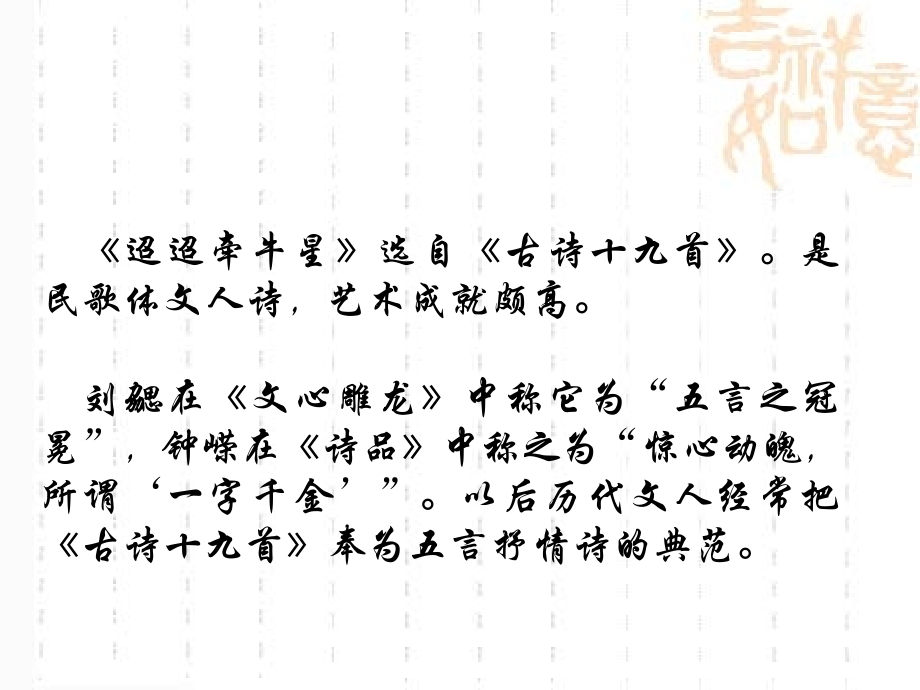 吉祥如意
《迢迢牵牛星》选自《古诗十九首》。是
民歌体文人诗，艺术成就颇高。
刘勰在《文心雕龙》中称它为“五言之冠
冕”，钟嵘在《诗品》中称之为“惊心动魄，
所谓‘一字千金’”。以后历代文人经常把
《古诗十九首》奉为五言抒情诗的典范。